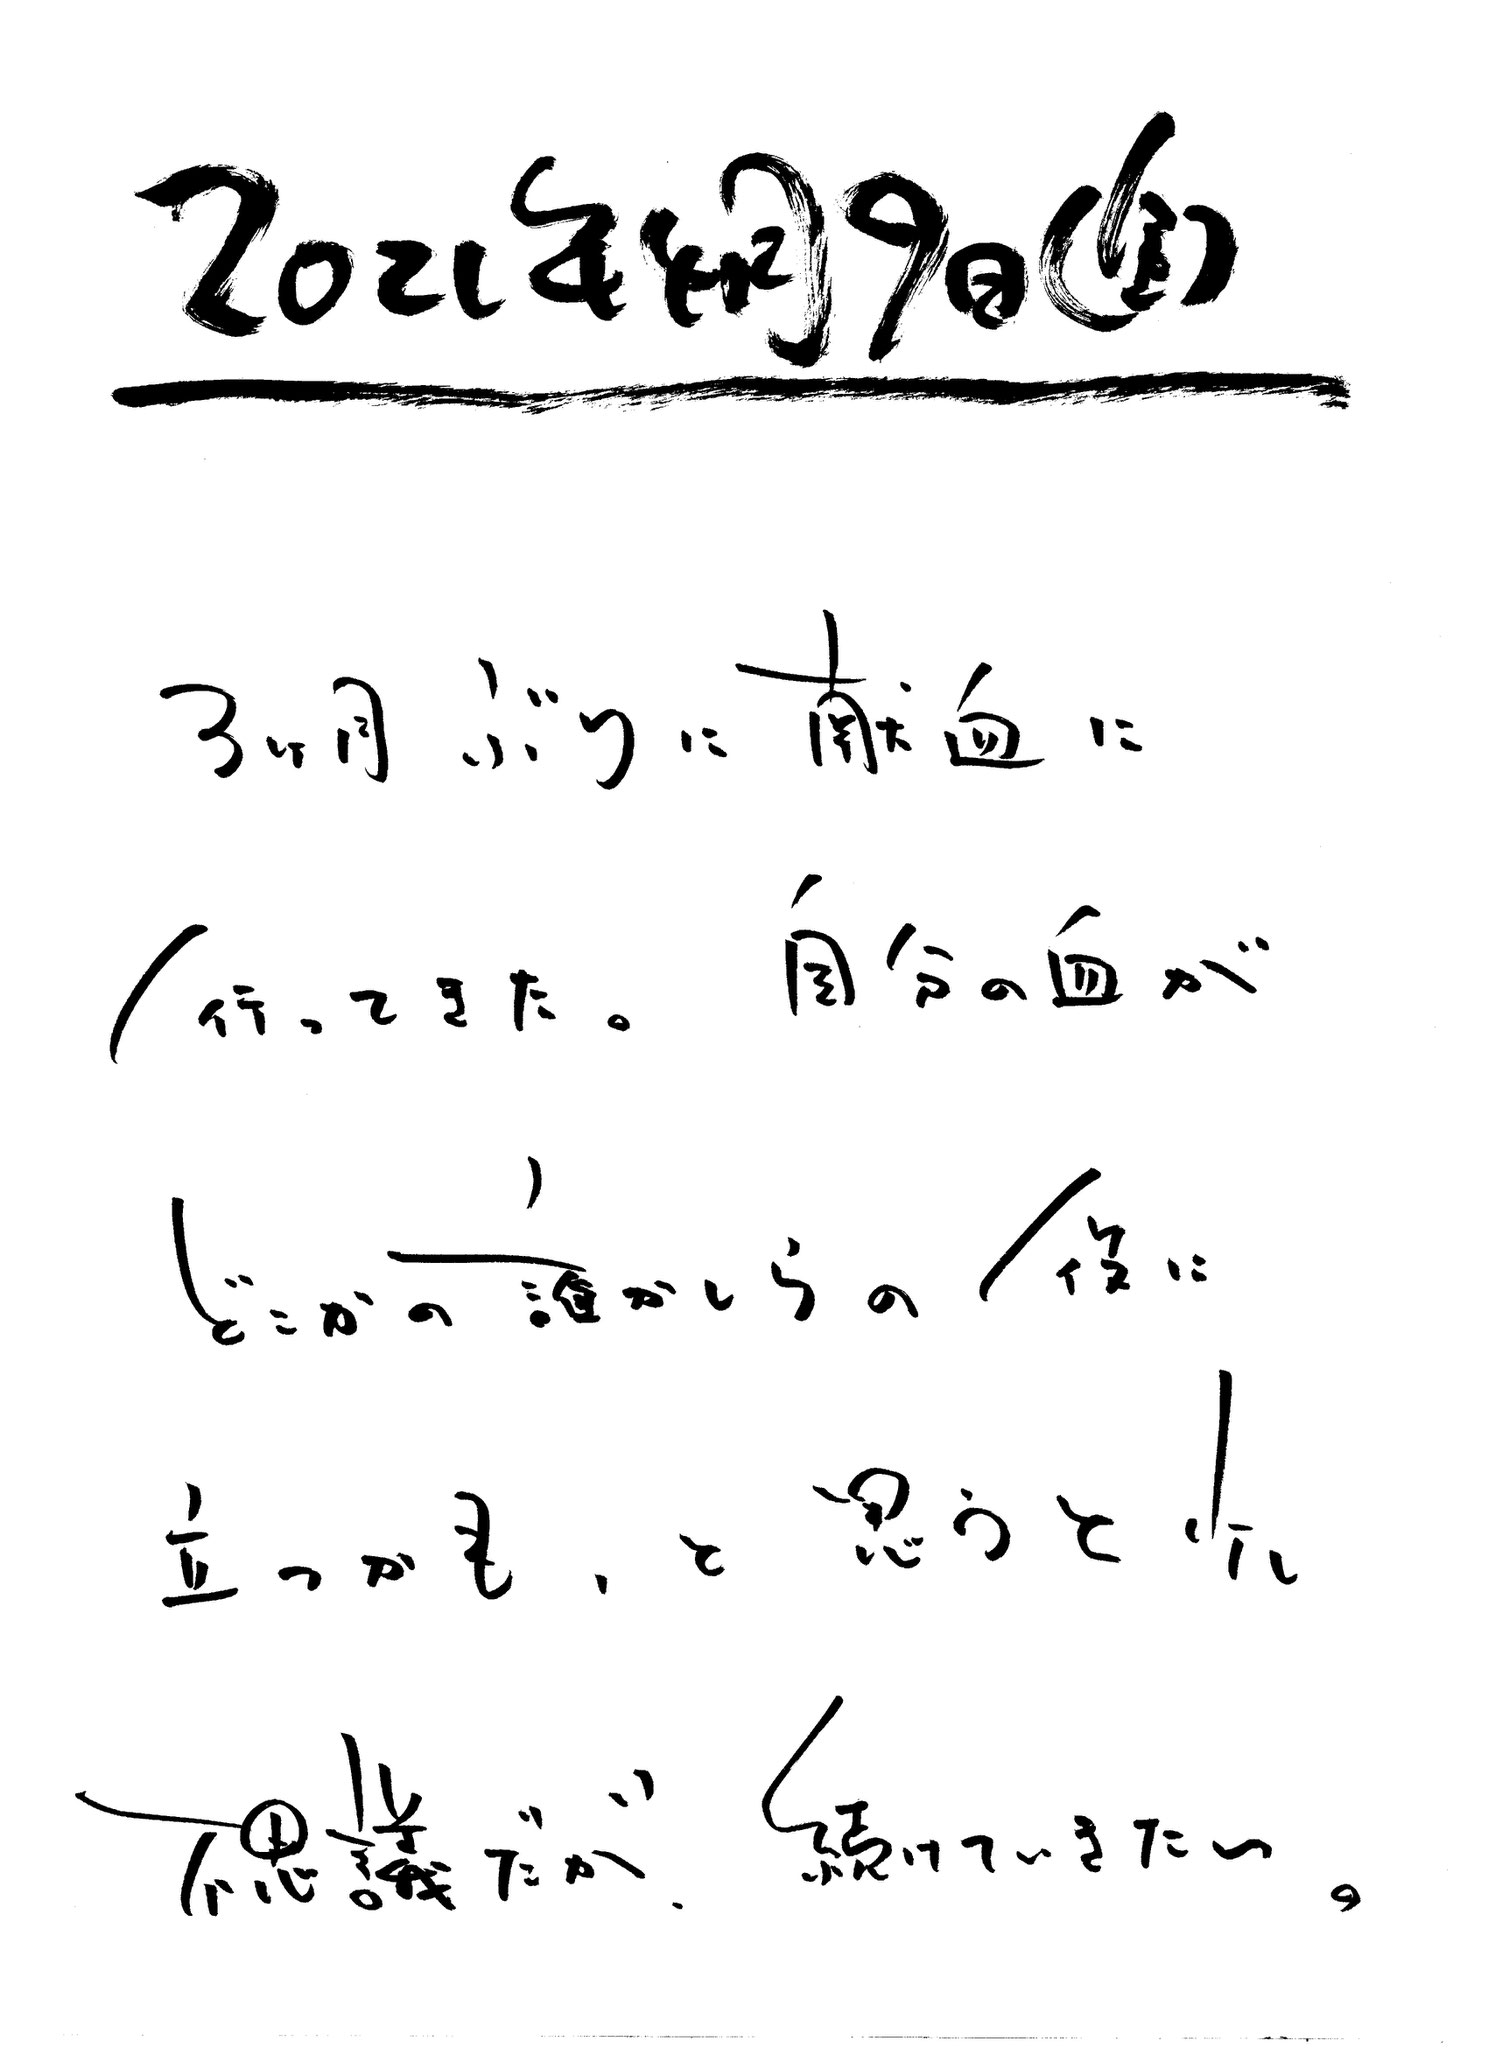 2021年4月9日(金)
3ヶ月ぶりに献血に
行ってきた。自分の血が
どこかの誰かしらの役に
立つかも、と思うと少し
不思議だが、続けていきたい。